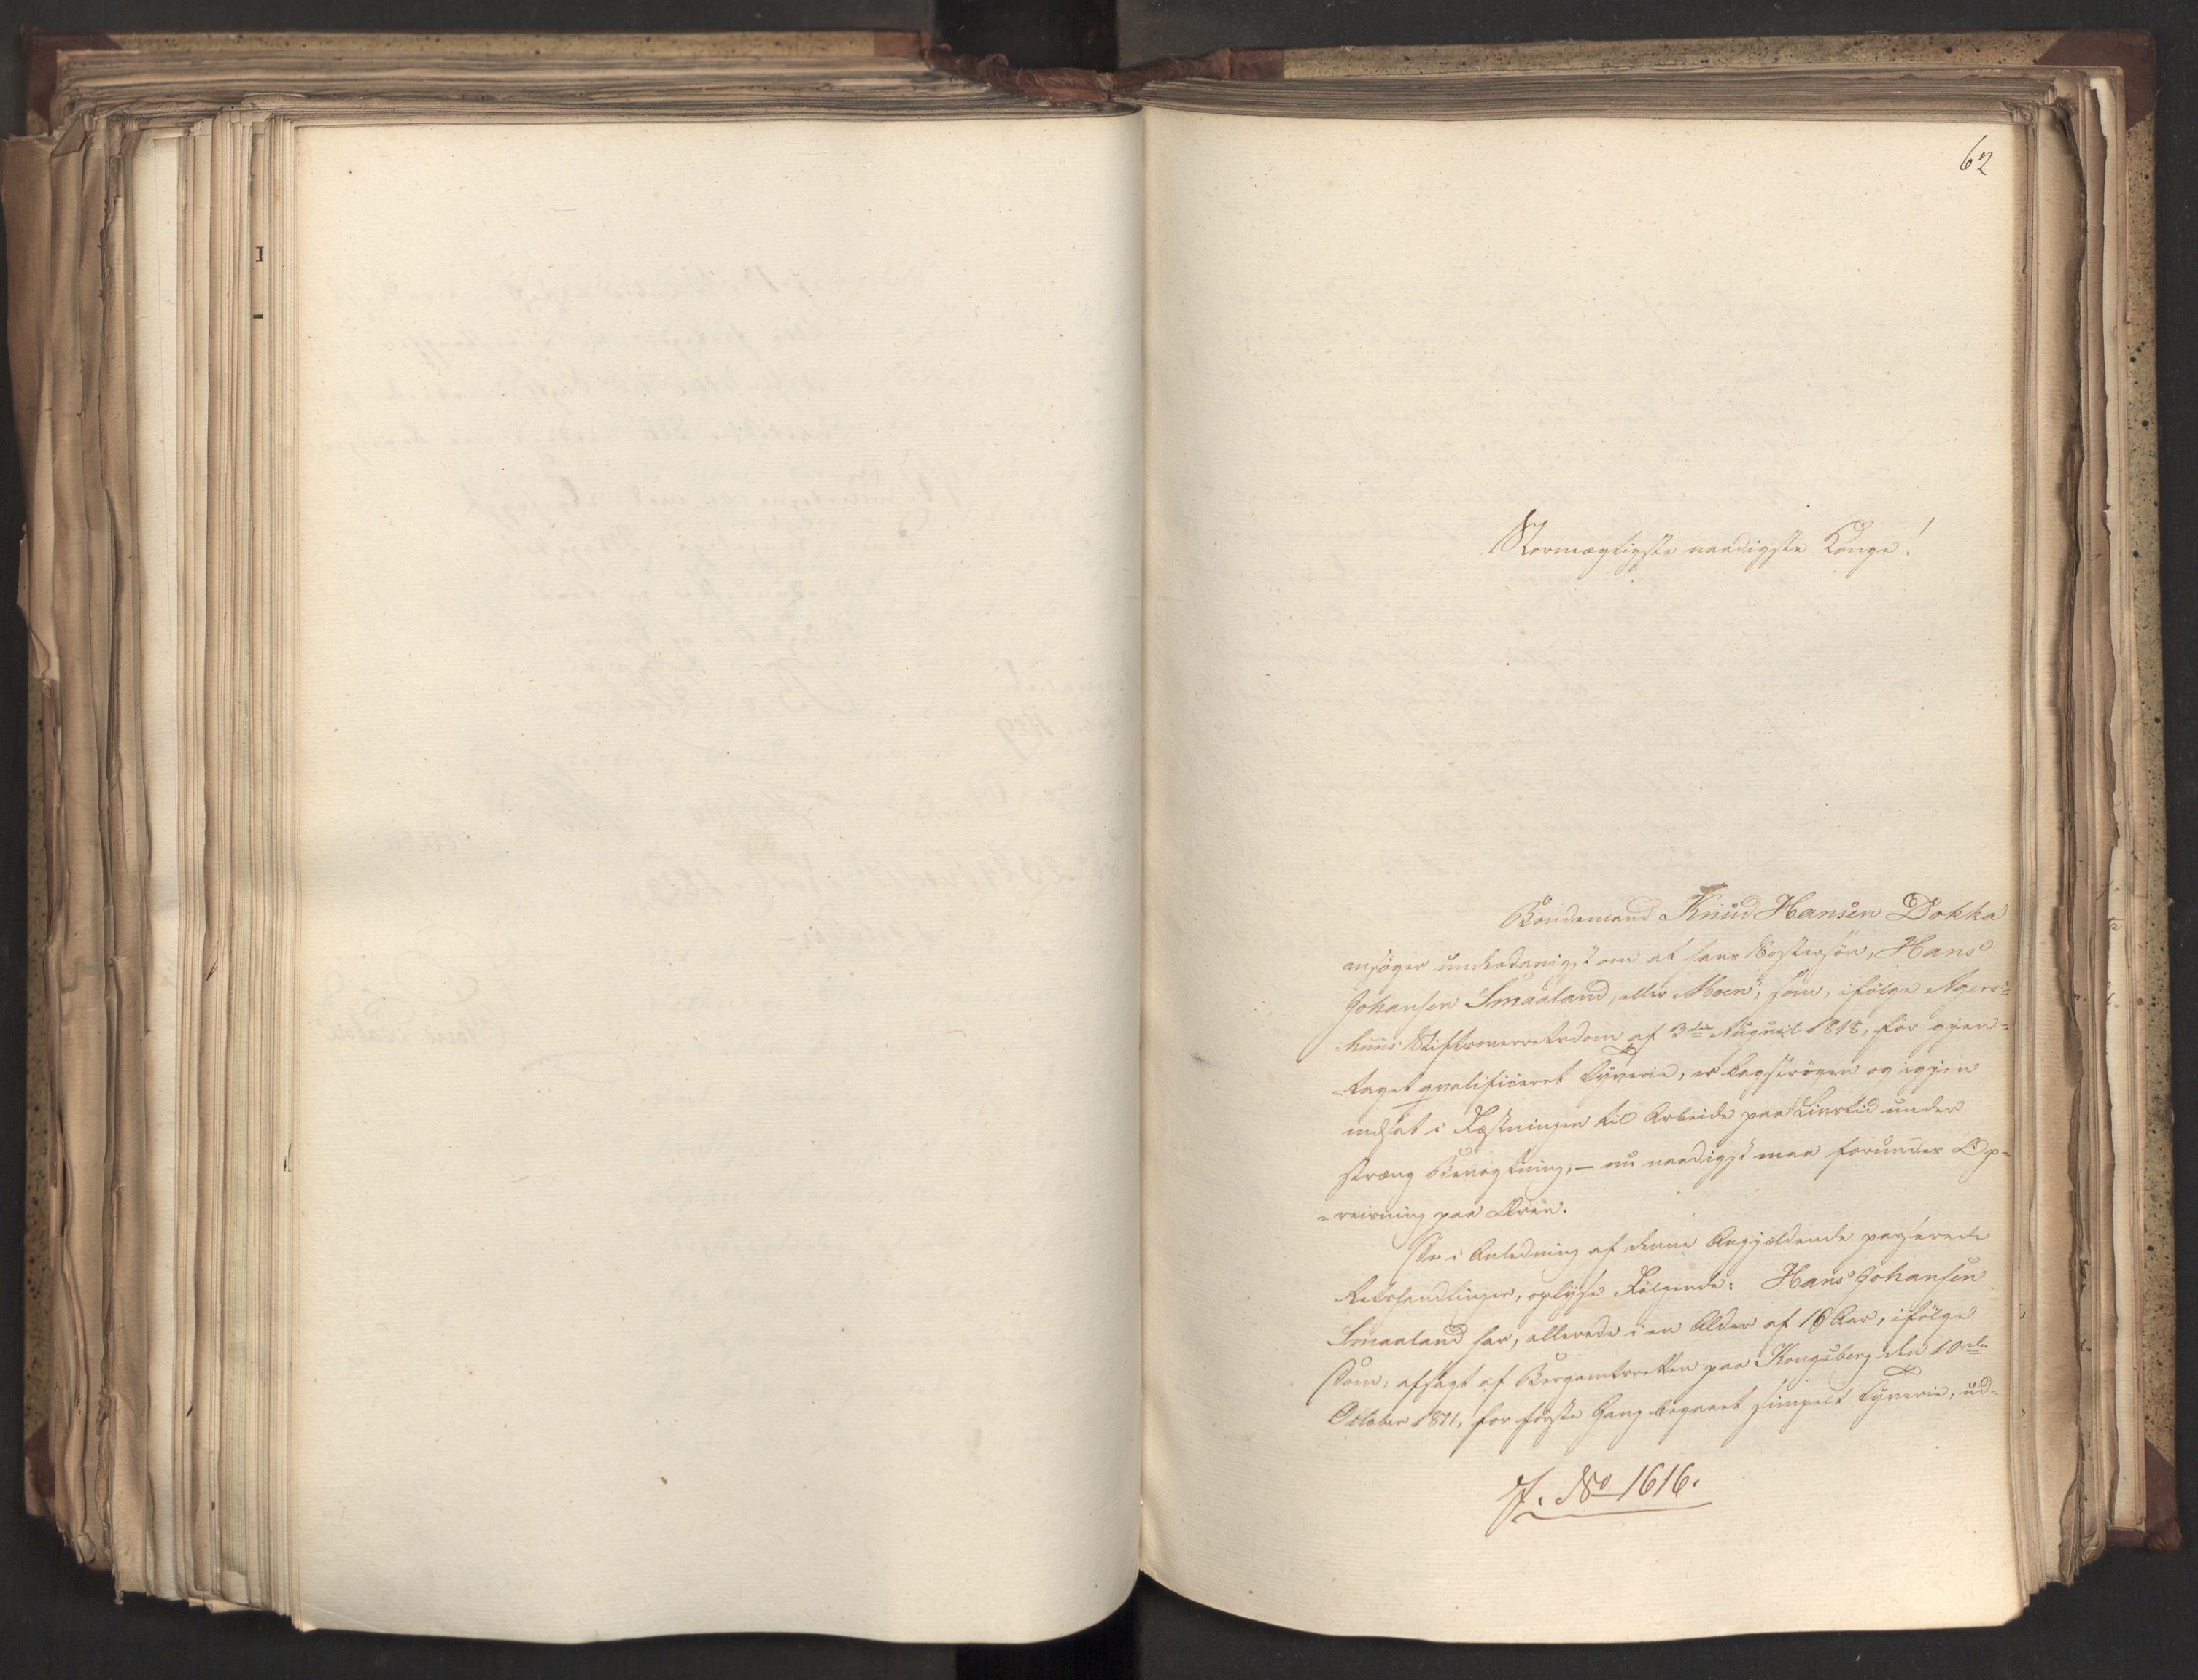 62
Stormægtigste naadigste Konge!
Bondemand Knud Hansen Dokka
ansøger underdanigst om at hans Sostersøn, Hans
Johansen Smaaland, eller Moen, som, ifølge Agers=
=huus Stiftsoverretsdom af 3die August 1818, for gjen=
=taget qvalificeret Tyverie, er kagstrøgen og igjen
indsat i Fæstningen til Arbeide paa Livstid under
streng Bevogtning, — nu naadigst maa forundes Op=
=reisning paa Æren.
De i Anledning af denne Angjældende passerede
Retshandlinger, oplyse Følgende: Hans Johansen
Smaaland har, allerede i en Alder af 16 Aar, ifølge
Dom, afsagt af Bergamtsretten paa Kongsberg den 10de
October 1811, for første Gang begaaet simpelt Tyverie, ud=
J. No 1616.